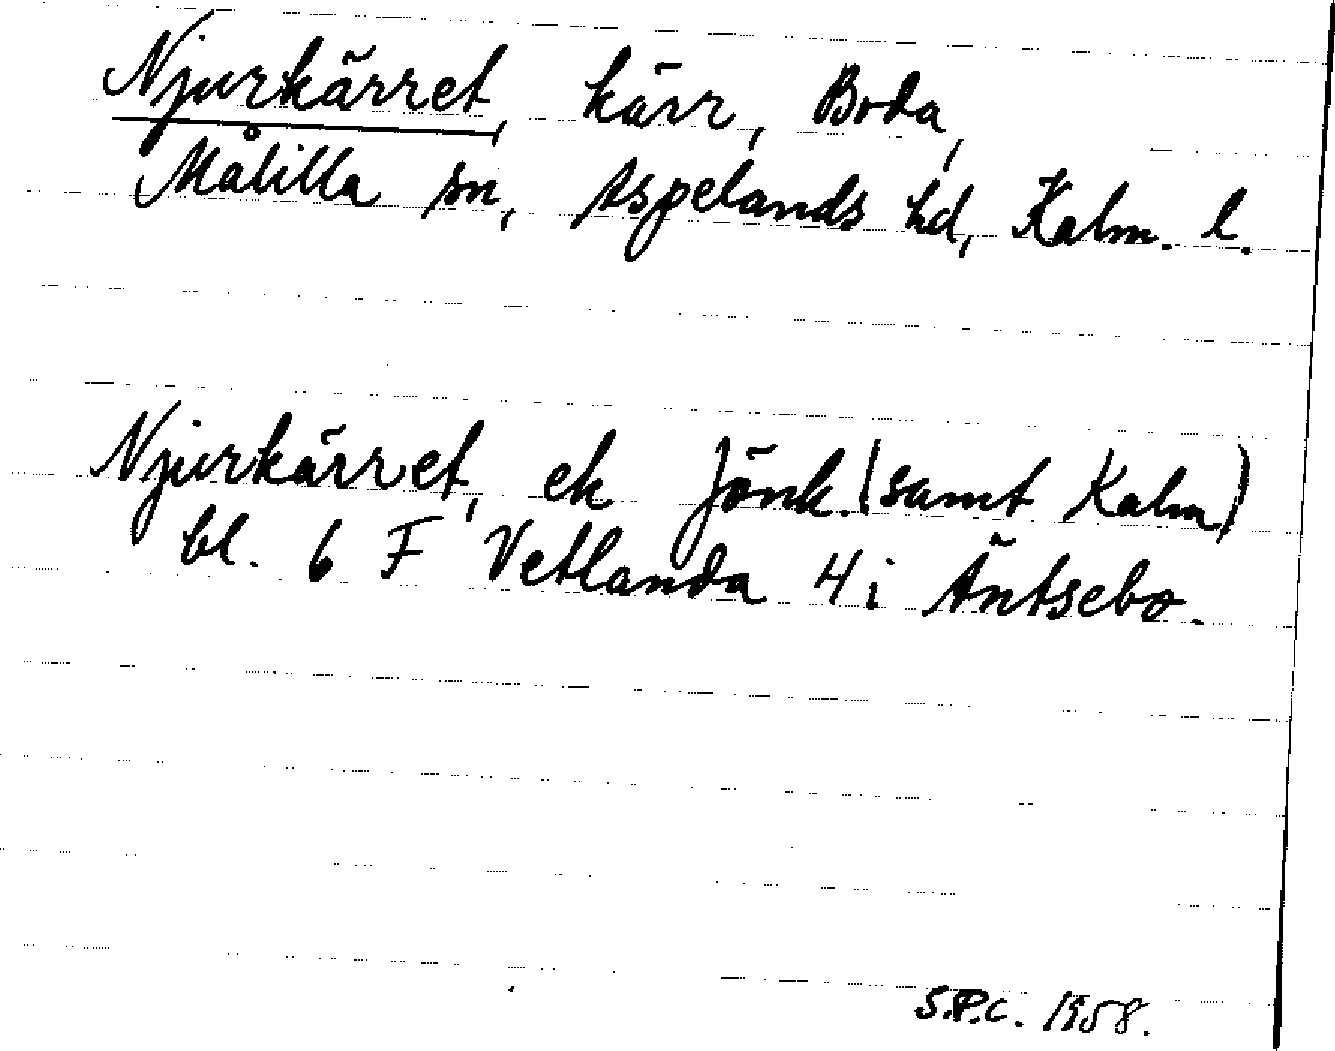 Njurkärret, kärr, Boda,
Målilla sn, Aspelands hd, Kalm. l.
Njurkärret, ek Jönk. (samt Kalm)
bl. 6 F Vetlanda 4 i Äntsebo.
S.P.C. 1958.